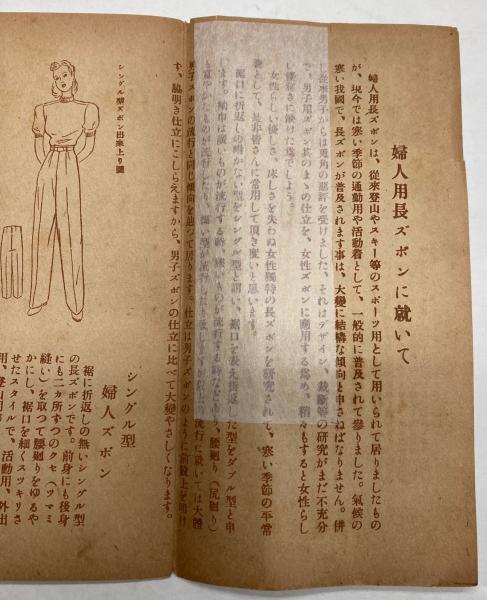 婦人用長ズボンに就いて
婦人用長ズボンは、從來登山やスキー等のスポーツ用として用いられて居りましたもの
が、現今では寒い季節の通勤用や活動着として、一般的に普及されて參りました。氣候の
寒い我國で、長ズボンが普及されます事は、大變に結構な傾向と申さねばなりません。併
し從來男子からは兎角の惡評を受けました、それはデザイン、裁斷等の研究がまだ不充分
で、男子用ズボン其のまゝの仕立を、女性ズボンに應用する爲め、稍々もすると女性らし
い優雅さに缺けた爲でしよう。
女性らしい優しさ、床しさを失わぬ女性獨特の長ズボンを研究されて、寒い季節の平常
着として、是非皆さんに常用して頂き度いと思います。
裾口に折返しの付かない型をシングル型と謂い、裾口を表え折返した型をダブル型と申
します。
腰廻り（尻廻り）
流行に就いては大體
男子ズボンの流行と同じ傾向を辿って居ります。仕立は男子ズボンのように前股上を明け
ず、脇明き仕立にこしらえますから、男子ズボンの仕立に比べて大變やさしくなります。
シングル型ズボン出來上り圖
シングル型
婦人ズボン
裾に折返しの無いシングル型
の長ズボンです。前身にも後身
にも二カ所ずつのクセ（ツマミ
縫い）を取つて腰廻りをゆるや
かにし、裾口を細くスツキリさ
せたスタイルで、活動用、外出
用、登山用